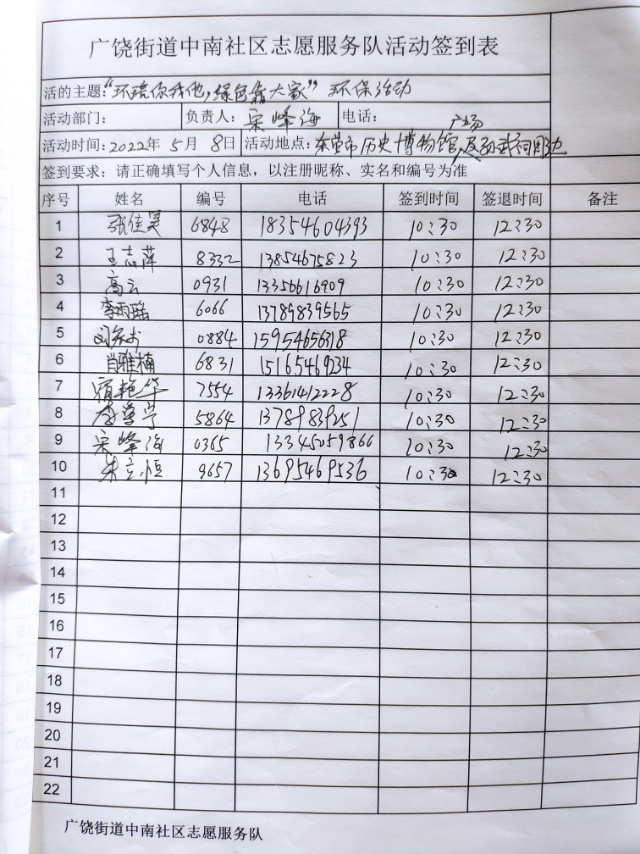 广饶街道中南社区志愿服务队活动签到表
活的主题：“环境你我他，绿色靠大家”环保活动
活动部门： 负责人：宋峰海 电话：
广场
活动时间：2022年 5月 8日 活动地点：东营市历史博物馆，及孙武祠周边
签到要求：请正确填写个人信息，以注册昵称、实名和编号为准
序号 姓名 编号 电话 签到时间 签退时间 备注
1 张佳昊 6848 18354604393 10:30 12:30
2 王志萍 8332 13854675823 10:30 12:30
3 高云 0931 13356616909 10:30 12:30
4 李雨璐 6066 13789839565 10:30 12:30
5 0884 15954656318 10:30 12:30
6 肖雅楠 6831 15165469234 10:30 12:30
7 宿艳华 7554 13361412228 10:30 12:30
8 李 宁 5864 13789839251 10:30 12:30
9 宋峰海 0365 13345059866 10:30 12:30
10 朱立恒 9657 13695469536 10:30 12:30
11
12
13
14
15
16
17
18
19
20
21
22
广饶街道中南社区志愿服务队